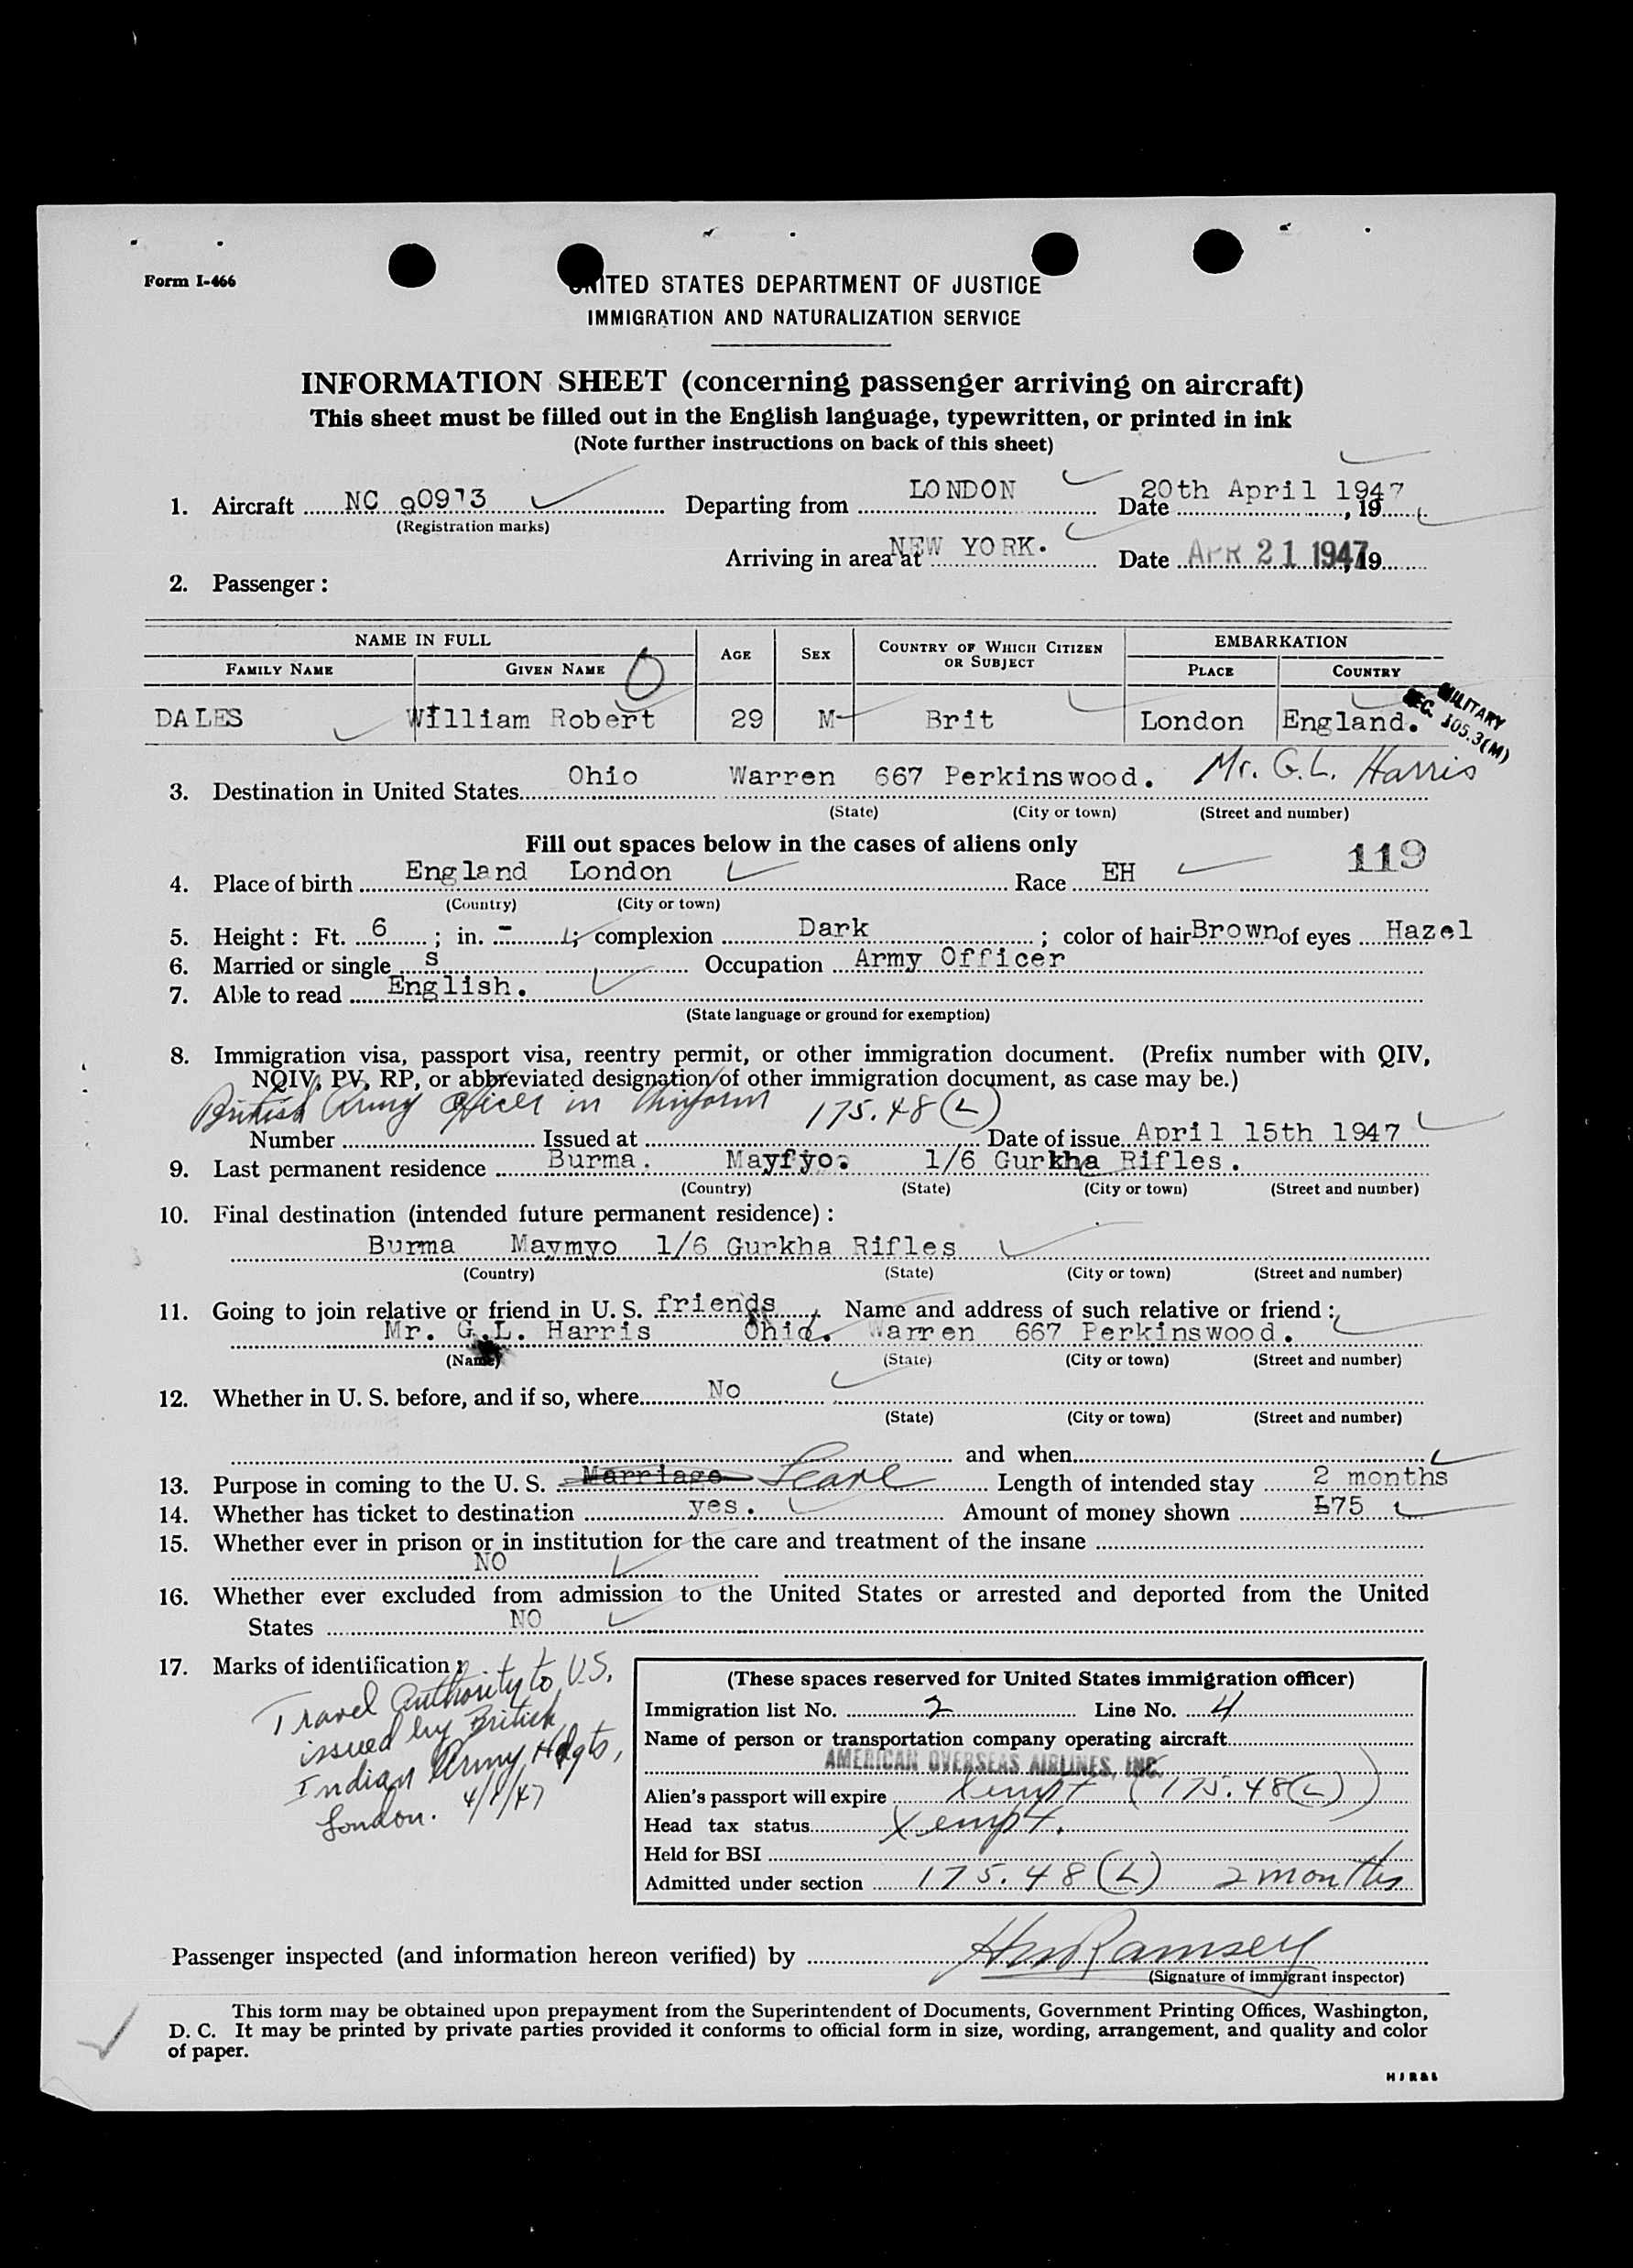 Form I-466
UNITED STATES DEPARTMENT OF JUSTICE
IMMIGRATION AND NATURALIZATION SERVICE
INFORMATION SHEET (concerning passenger arriving on aircraft)
This sheet must be filled out in the English language, typewritten, or printed in ink
(Note further instructions on back of this sheet)
1. Aircraft NC 90913 Departing from LONDON Date 20th April 1947, 19
(Registration marks)
Arriving in area at NEW YORK. Date APR 21 1947, 19
2. Passenger:
NAME IN FULL AGE SEX COUNTRY OF WHICH CITIZEN OR SUBJECT EMBARKATION
FAMILY NAME GIVEN NAME PLACE COUNTRY
DALES William Robert 29 M Brit London England.
MILITARY
SEC. 105.3(M)
Mr. G.L. Harris
3. Destination in United States Ohio Warren 667 Perkinswood.
(State) (City or town) (Street and number)
Fill out spaces below in the cases of aliens only
119
4. Place of birth England London Race EH
(Country) (City or town)
5. Height: Ft. 6; in. -; complexion Dark; color of hair Brown of eyes Hazel
6. Married or single S Occupation Army Officer
7. Able to read English.
(State language or ground for exemption)
8. Immigration visa, passport visa, reentry permit, or other immigration document. (Prefix number with QIV,
NQIV, PV, RP, or abbreviated designation of other immigration document, as case may be.)
British Army Officer in Uniform 175.48(L)
Number Issued at Date of issue April 15th 1947
9. Last permanent residence Burma. Mayfyo. 1/6 Gurkha Rifles.
(Country) (State) (City or town) (Street and number)
10. Final destination (intended future permanent residence):
Burma Maymyo 1/6 Gurkha Rifles
(Country) (State) (City or town) (Street and number)
11. Going to join relative or friend in U. S. friends Name and address of such relative or friend:
Mr. G.L. Harris Ohio. Warren 667 Perkinswood.
(Name) (State) (City or town) (Street and number)
12. Whether in U. S. before, and if so, where No
(State) (City or town) (Street and number)
and when
13. Purpose in coming to the U. S. Marriage Leave Length of intended stay 2 months
14. Whether has ticket to destination yes. Amount of money shown £75
15. Whether ever in prison or in institution for the care and treatment of the insane
NO
16. Whether ever excluded from admission to the United States or arrested and deported from the United
States NO
17. Marks of identification:
Travel Authority to U.S.
issued by British
Indian Army Hdqts,
London. 4/1/47
(These spaces reserved for United States immigration officer)
Immigration list No. 2 Line No. 4
Name of person or transportation company operating aircraft
AMERICAN OVERSEAS AIRLINES, INC.
Alien's passport will expire Xempt (175.48(L))
Head tax status Xempt.
Held for BSI
Admitted under section 175.48(L) 2 months
Passenger inspected (and information hereon verified) by Ramsey
(Signature of immigrant inspector)
This form may be obtained upon prepayment from the Superintendent of Documents, Government Printing Offices, Washington,
D. C. It may be printed by private parties provided it conforms to official form in size, wording, arrangement, and quality and color
of paper.